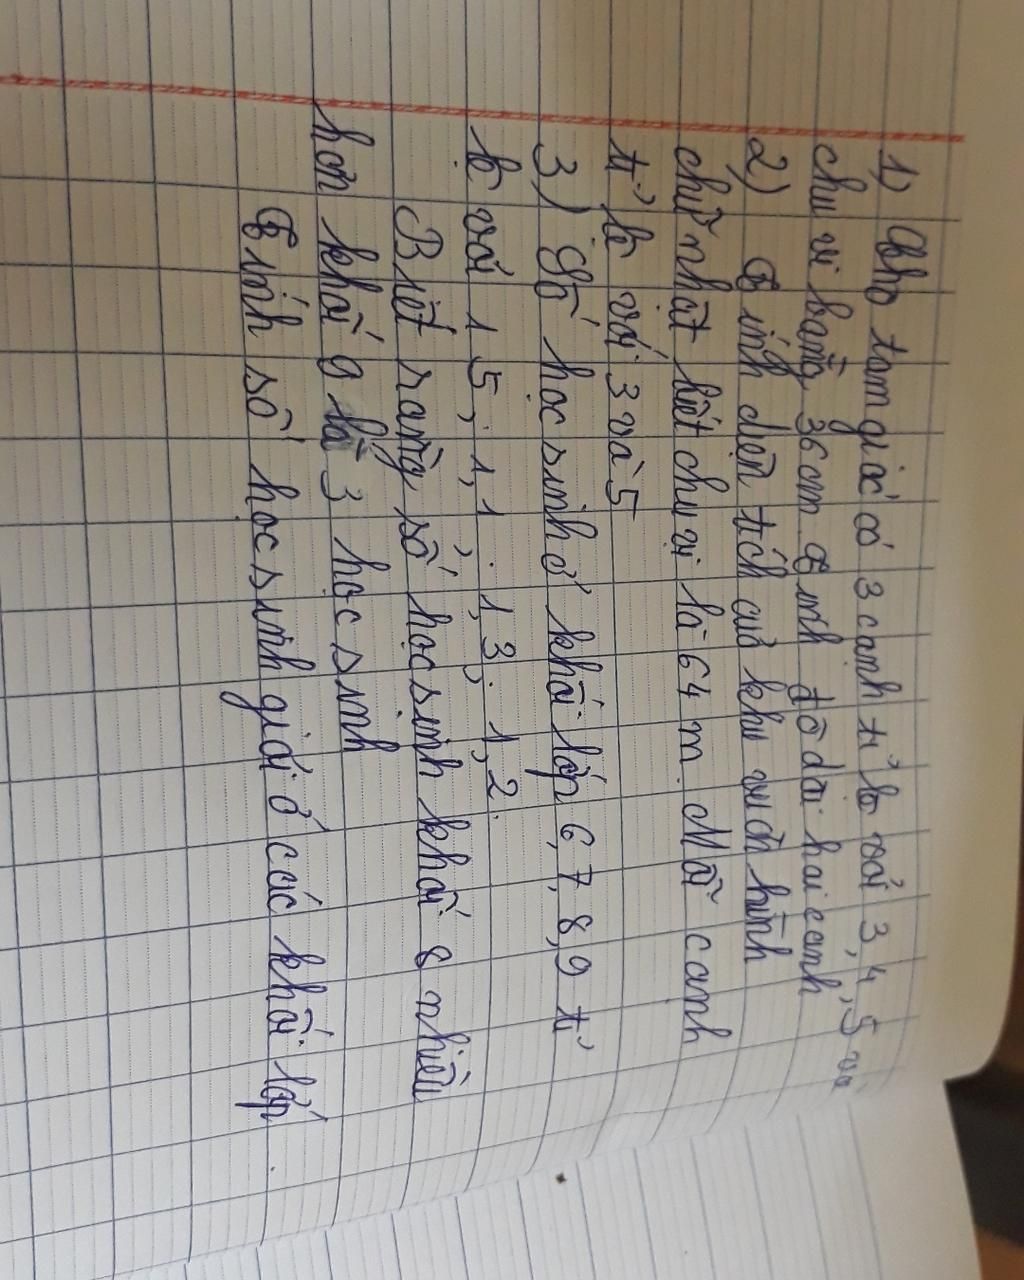 1) Cho tam giác có 3 cạnh tỉ lệ với 3, 4, 5 và
chu vi bằng 36cm Tính độ dài hai cạnh
2) Tính diện tích của khu vườn hình
chữ nhật biết chu vi là 64 m. Mỗi cạnh
tỉ lệ với 3 và 5
3) Số học sinh ở khối lớp 6, 7, 8, 9 tỉ
lệ với 1,5; 1,1; 1,3; 1,2.
Biết rằng số học sinh khối 8 nhiều
hơn khối 9 là 3 học sinh
Tính số học sinh giỏi ở các khối lớp.